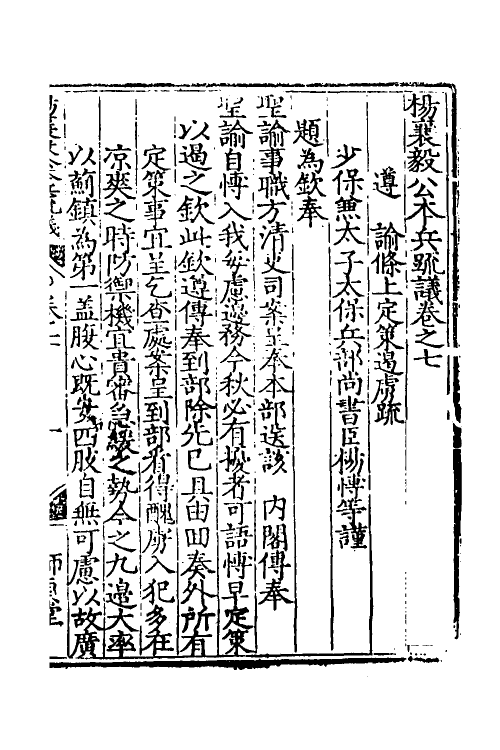 楊襄毅公本兵疏議卷之七
遵　諭條上定策遏虜疏
少保兼太子太保兵部尚書臣楊愽等謹
題為欽奉
聖諭事職方清吏司案呈奉本部送該　内閣傳奉
聖諭自愽入我每慮邊務今秋必有擾者可語愽早定策
以遏之欽此欽遵傳奉到部除先已具由回奏外所有
定策事宜呈乞查處案呈到部看得醜虜入犯多在
凉爽之時防禦機宜貴審急緩之勢今之九邊大率
以薊鎮為第一盖腹心既安四肢自無可慮以故廣